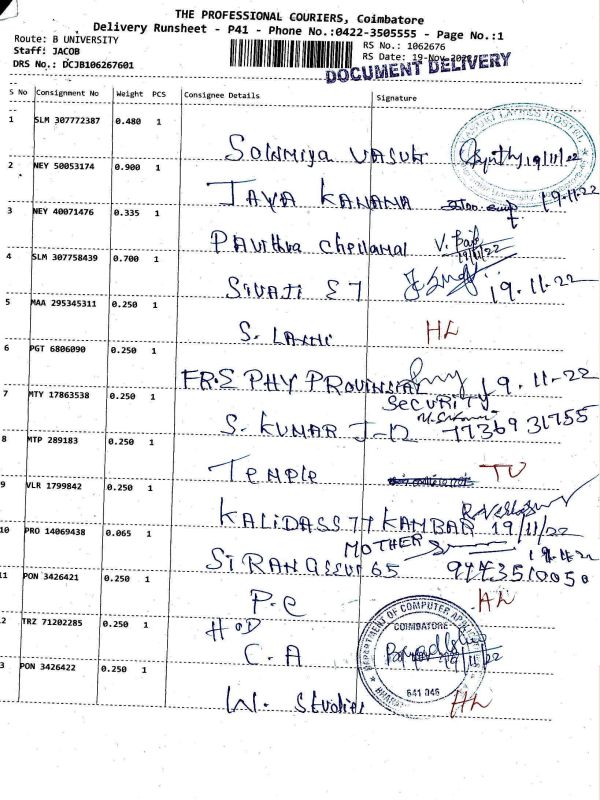 THE PROFESSIONAL COURIERS, Coimbatore
Delivery Runsheet - P41 - Phone No.:0422-3505555 - Page No.:1
Route: B UNIVERSITY
Staff: JACOB
DRS No.: DCJB106267601
RS No.: 1062676
RS Date: 19-Nov-
DOCUMENT DELIVERY
S No Consignment No Weight PCS Consignee Details Signature
1 SLM 307772387 0.480 1
Sowmiya 19/11/22
2 NEY 50053174 0.900 1
JAYA KANAMA 19.11.22
3 NEY 40071476 0.335 1
Pavithra Chellamal 19/11/22
4 SLM 307758439 0.700 1
SIVAJI E7 19.11.22
5 MAA 295345311 0.250 1
S. HL
6 PGT 6806090 0.250 1
FR.S PHY PROVINSIAL 19.11-22
SECURITY
7 MTY 17863538 0.250 1
S. KUMAR J-12 7736931755
8 MTP 289183 0.250 1
TEMPLE
9 VLR 1799842 0.250 1
KALIDASS 77 KAMBAR 19/11/22
10 PRO 14069438 0.065 1
MOTHER
65 9443510050
11 PON 3426421 0.250 1
P.C HL
2 TRZ 71202285 0.250 1
HOD
C.A 19/11/22
DEPARTMENT OF COMPUTER
COIMBATORE
641 046
3 PON 3426422 0.250 1
W. Studies HL